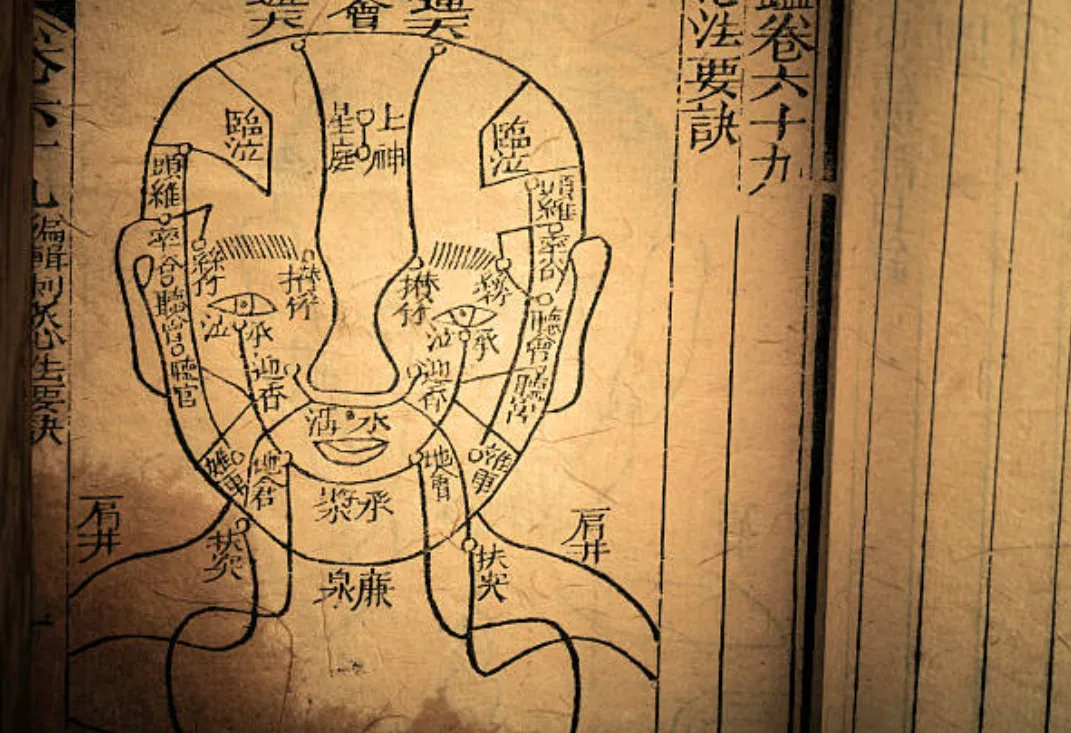 鑑卷六十九
法要訣
通天
會
通天
上神
星庭
臨泣
臨泣
頭維
頭維
率谷
率谷
絲竹
攢竹
攢竹
絲竹
聽會
聽會
聽宮
承泣
承泣
迎香
迎香
水溝
地倉
地會
承漿
廉泉
扶突
扶突
肩井
肩井
六十九
編輯刺灸心法要訣
一